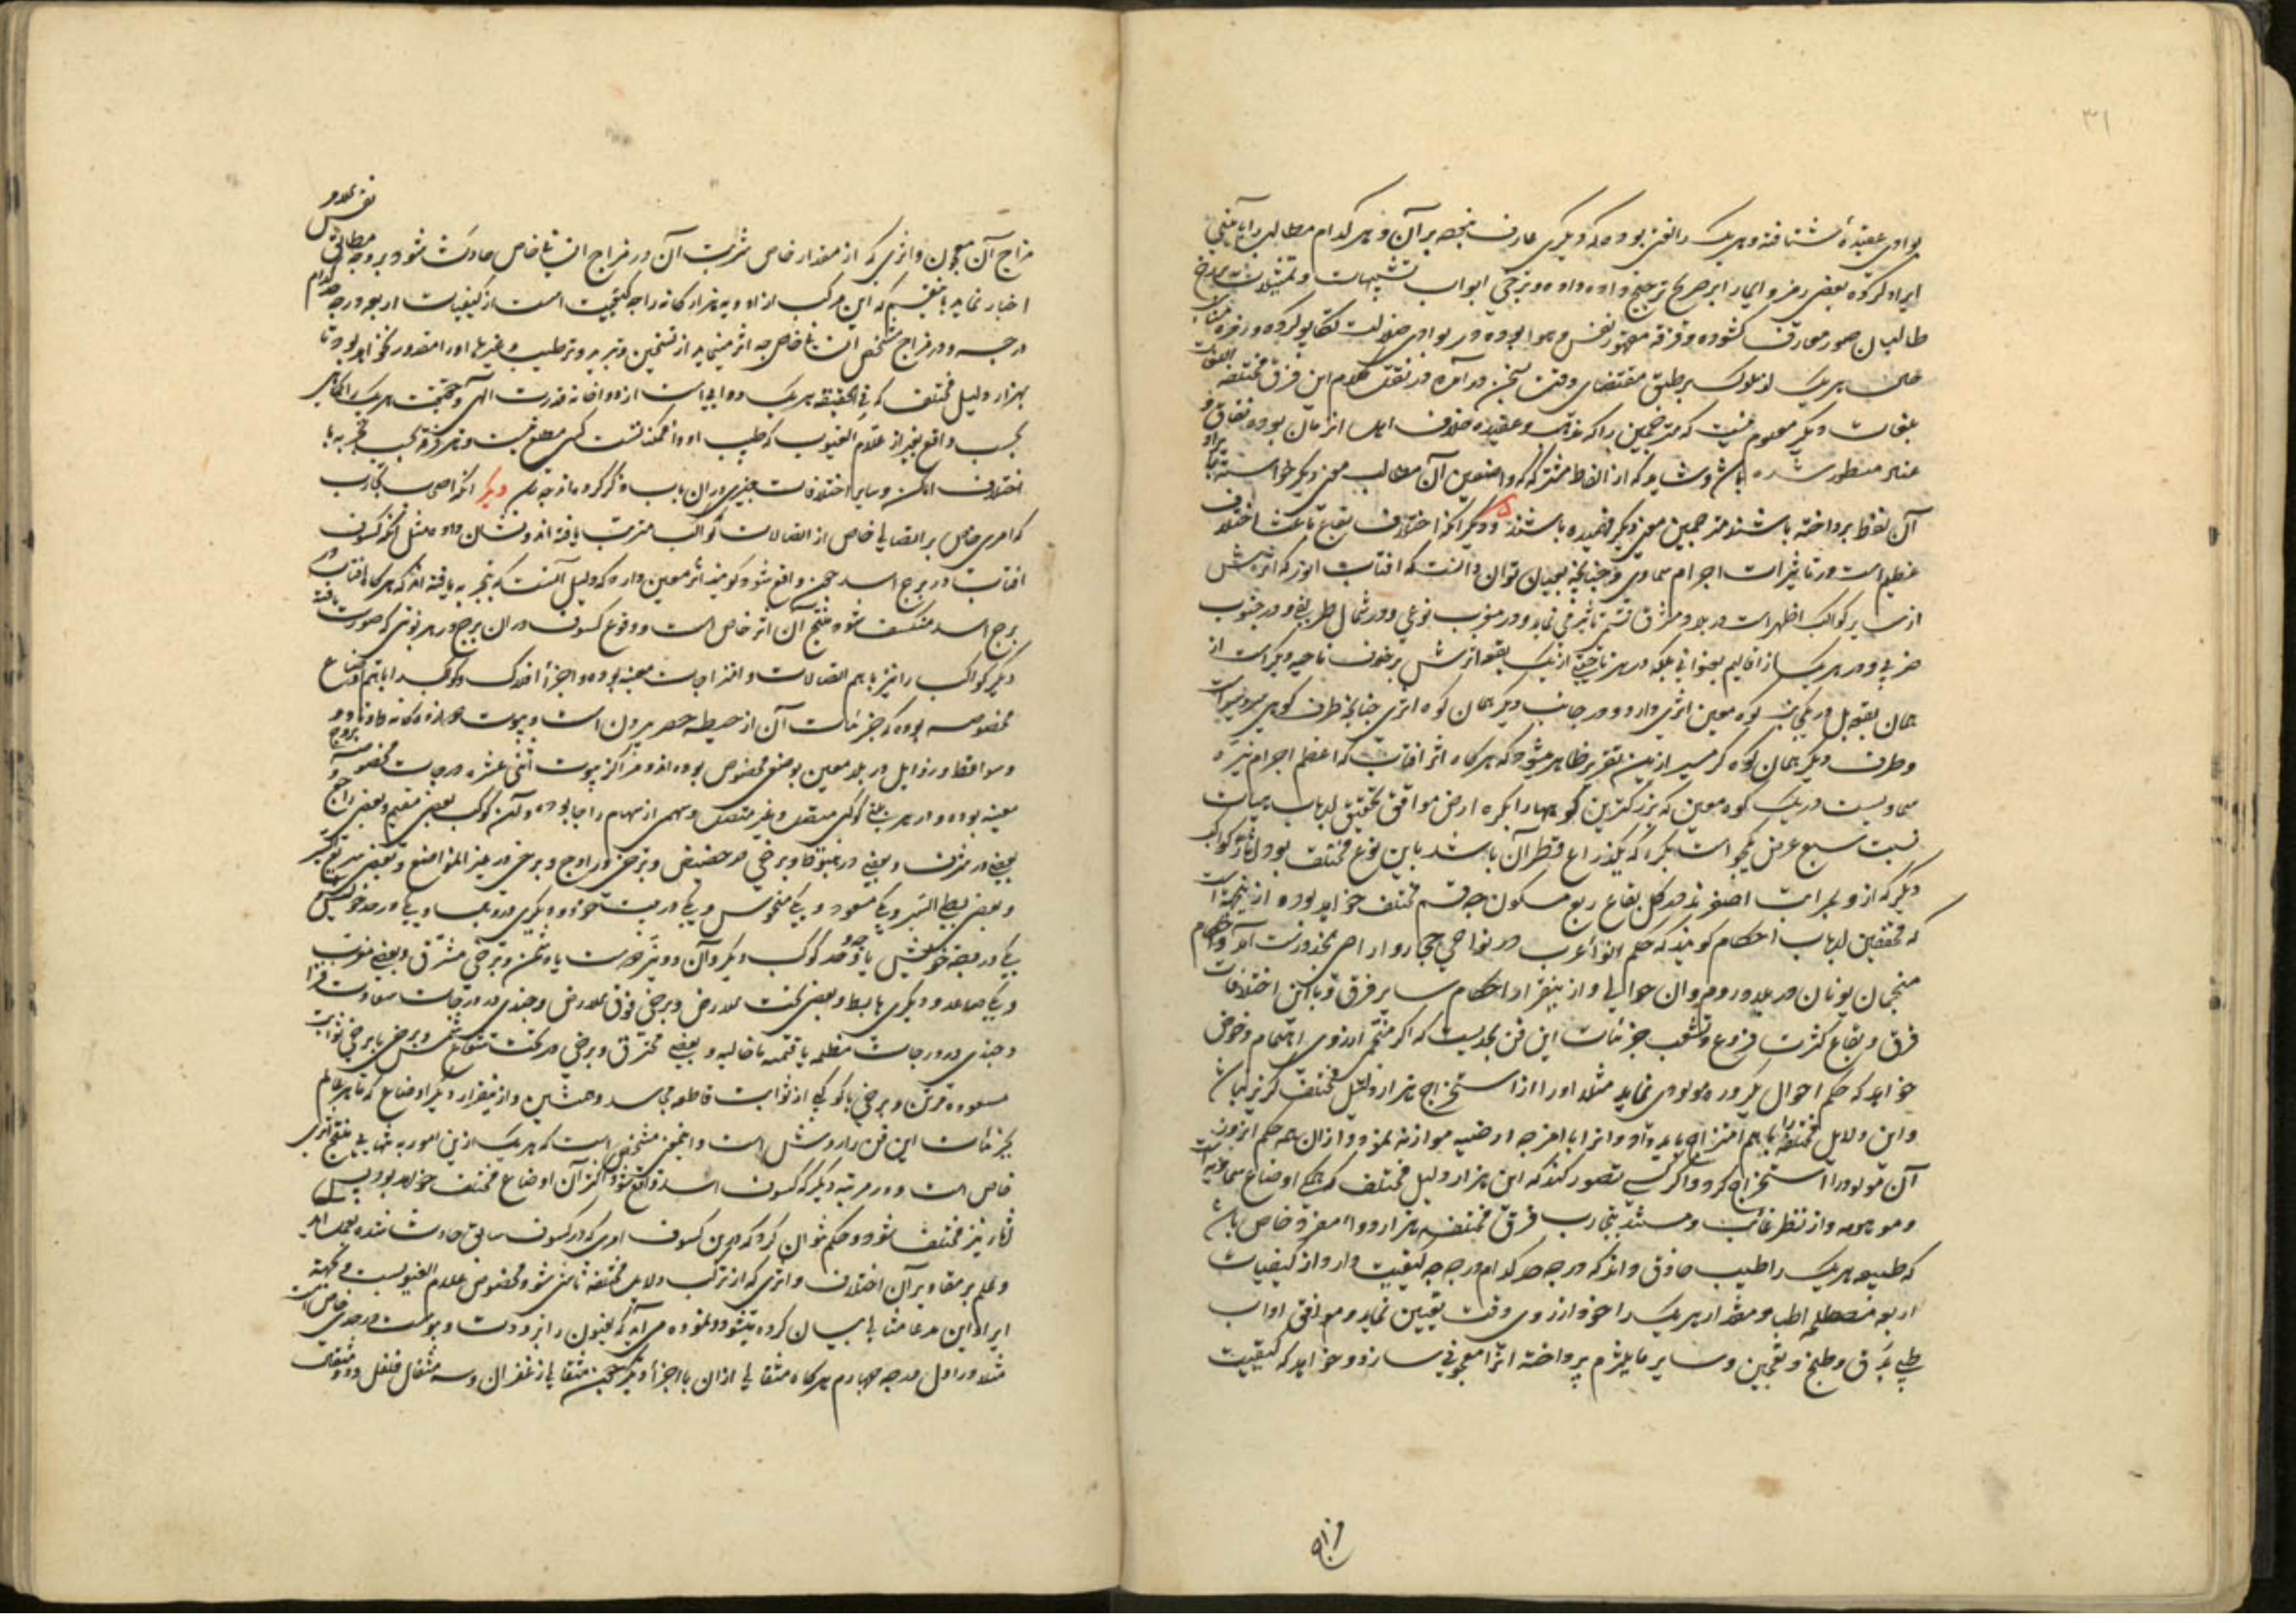 ۳۱
بوادی عقیده شتافته و هر یک را لغتی بوده که دیگری عارف نبوده بر آن و هر کدام مطالب را بآیینی
ایراد کرده بعضی رمز و ایما را بر صریح ترجیح داده و برخی ابواب تشبیهات و تمثیلات بر رخ
طالبان صور معارف کشوده و فرقه مقهور نفس و هوا بوده در بوادی ضلالت تکاپو کرده و زمره
هر یک از ملوک بر طبق مقتضای وقت سخن در آمده در نقل کلام این فرق مختلفه
بلغات دیگر معلوم نیست که مترجمین را که مذهب و عقیده خلاف اهل آنزمان بوده
مسطور شده باشد و شاید که از الفاظ مشترکه که واضعین آن مطالب معنی دیگر خواسته
آن لفظ پرداخته باشند مترجمین معنی دیگر فهمیده باشند و دیگر آنکه اختلاف بقاع باعث اختلاف
عظیم است در تاثیرات اجرام سماوی و چنانچه توان دانست که آفتاب انور که اثرش
از سایر کواکب اظهر است در بلاد مشرق قسمی تاثیر می نماید و در مغرب نوعی و در شمال طریقی و در جنوب
ضربی و در هر یک از اقالیم بعنوانی بلکه در هر ناحیه از یک بقعه اثرش برخلاف ناحیه دیگر است از
همان بقعه بل در یکجانب کوه معین اثری دارد و در جانب دیگر همان کوه اثری چنانچه طرف کوهی سردسیر است
و طرف دیگر همان کوه گرمسیر ازین تقریر ظاهر میشود که هرگاه اثر آفتاب که اعظم اجرام نیره
سماویست در یک کوه معین که بزرگترین کوهها را بکره ارض موافق تحقیق ارباب هیات
نسبت سبع عرض یکجو است بکره که یکذراع قطر آن باشد باین نوع مختلف بود آثار کواکب
دیگر که از و بمراتب اصغرند در کل بقاع ربع مسکون چه قسم مختلف خواهد بود و ازینجهة است
که محققین ارباب احکام گویند که حکم انواء عرب در نواحی حجاز و آن اراضی درست آید و احکام
منجمان یونان در بلاد روم و آن حوالی و ازینقرار احکام سایر فرق و با این اختلافات
فرق و بقاع کثرت فروع و تشعب جزئیات این فن بحدیست که اگر منجمی از روی اهتمام و خوض
خواهد که حکم احوال یکروزه مولودی نماید مثلا او را از استخراج هزار دلیل مختلف گریز نباشد
و این دلایل مختلفه را با هم امتزاج باید داد و آنرا با امزجه ارضیه موازنه نمود و از آن همه حکم آنروز
آن مولود را استخراج کرد و اگر کسی تصور کند که این هزار دلیل مختلف که همگی اوضاع سماویه است
و موهومه و از نظر غائب و مستند بتجارب فرق مختلفه هزار دواء مفرد خاص باشد
که طبیعه هر یک را طبیب حاذق داند که در چه حد کدام درجه چه کیفیت دارد از کیفیات
اربعه مصطلحه اطبا و مقدار هر یک را خود از روی وقت تعیین نماید و موافق آداب
طبی بدق و طبخ و تعجین و سایر ما یلزم پرداخته آنرا معجونی سازد و خواهد که کیفیت
مزاج
مزاج آن معجون و اثری که از مقدار خاص شربت آن در مزاج انسان خاص حادث شود بر وجه مطابق نفس الامر
اخبار نماید باینقسم که این مرکب از ادویه هزارگانه را چه کیفیت است از کیفیات اربعه و در چه کدام
درجه و در مزاج شخص انسان خاص چه اثر مینماید از تسخین و تبرید و ترطیب و غیرها او را مقدور نخواهد بود تا
بهزار دلیل مختلف که فی الحقیقه هر یک دوایی است از دواخانه قدرت الهی و حقیقت هر یک را کماهی
بحسب واقع بغیر از علام الغیوب که طبیب آن دواخانه است کسی مطلع نیست و هر فرقه بحسب تجربه با
اختلاف امکنه و سایر اختلافات چیزی در آن باب ذکر کرده اند چه رسد دیگر آنکه اصحاب تجارب
که امری خاص بر اتصالی خاص از اتصالات کواکب مترتب یافته اند و نشان داده مثل آنکه کسوف
آفتاب در برج اسد چون واقع شود گویند اثر معین دارد که دلیل آنست که بتجربه یافته اند که هرگاه آفتاب در
برج اسد منکسف شود منتج آن اثر خاص است و وقوع کسوف در آن برج در هر نوبتی که صورت یافته
دیگر کواکب را نیز با هم اتصالات و امتزاجات معینه بوده و اجزاء افلاک و کواکب را با هم اوضاع
مخصوصه بوده که جزئیات آن از حیطه حصر بیرون است و بیوت دوازده گانه و اوتاد و
و سواقط و زوایل در بلد معین بوضعی مخصوص بوده اند و مراکز بیوت اثنی عشره درجات مخصوصه بروج
معینه بوده و در هر بیتی کوکبی متصل و غیر متصل و سهمی از سهام را جا بوده و آن کوکب بعضی مقیم و بعضی راجع و
بعضی در شرف و بعضی در هبوط و برخی در حضیض و برخی در اوج و برخی در غیر المواضع و بعضی سریع السیر
و بعضی بطی السیر و یکی مسعود و یکی منحوس و یکی در بیت خود و دیگری در وبال و یکی در حد خویش
یکی در وجه خویش یا در حد کوکب دیگر و آن دوستی هست یا دشمن و برخی مشرق و بعضی مغرب
و یکی صاعد و دیگری هابط و بعضی تحت الارض و برخی فوق الارض و چندی در درجات سعادت
و چندی در درجات مظلمه یا قتمه یا خالیه و بعضی محترق و برخی در تحت شعاع شمس و برخی با برخی ثوابت
مسعوده قرین و برخی با کوکبی از ثوابت قاطعه مجاسد و همنشین و ازینقرار دیگر اوضاع که ماهر عالم
بجزئیات این فن را روشن است و مشخص است که هر یک ازین امور به تنهایی منتج اثری
خاص است و در مرتبه دیگر که کسوف اسد واقع شود اکثر آن اوضاع مختلف خواهد بود پس
آثار نیز مختلف شود و حکم نتوان کرد که درین کسوف امری که در کسوف سابق حادث شده بعمل آید
و علم بمقادیر آن اختلاف و اثری که از ترکیب دلایل مختلفه ناشی شود مخصوص علام الغیوبست و بجهة
ایراد این مدعا مثالی بیان کرده میشود و نموده می آید که افیون را برودت و یبوست در حدی خاص است
مثلا در اول درجه چهارم هرگاه مثقالی از آن با اجزاء دیگر همچنین مثقالی زعفران و سه مثقال فلفل و دو مثقال